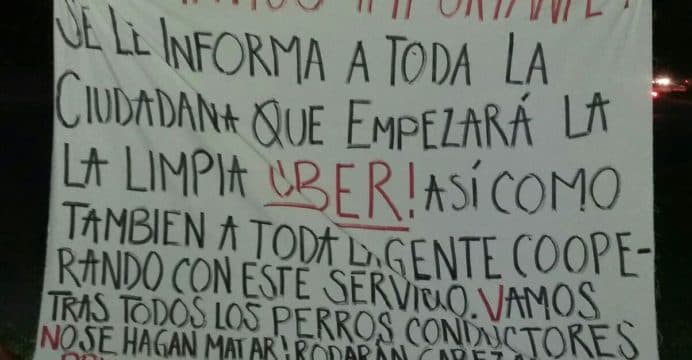 IMPORTANTE!
SE LE INFORMA A TODA LA
CIUDADANA QUE EMPEZARÁ LA
LA LIMPIA UBER! ASÍ COMO
TAMBIEN A TODA LA GENTE COOPE-
RANDO CON ESTE SERVICIO. VAMOS
TRAS TODOS LOS PERROS CONDUCTORES
NO SE HAGAN MATAR! RODARÁN